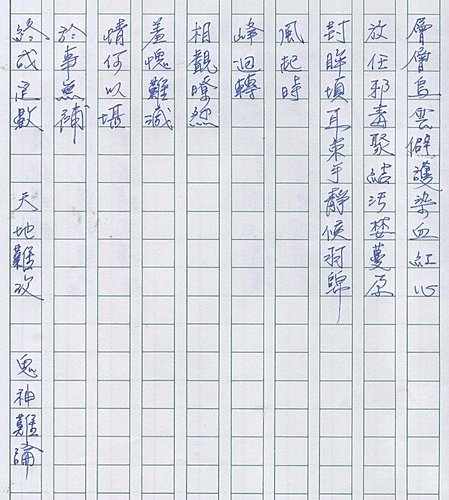 層層烏雲僻護染血紅心
放任邪毒聚結污埜蔓原
封眸塤耳束手靜候羽歸
風起時
峰迴轉
相觀暸然
羞愧難減
情何以堪
於事無補
終成定數 天地難改 鬼神難論